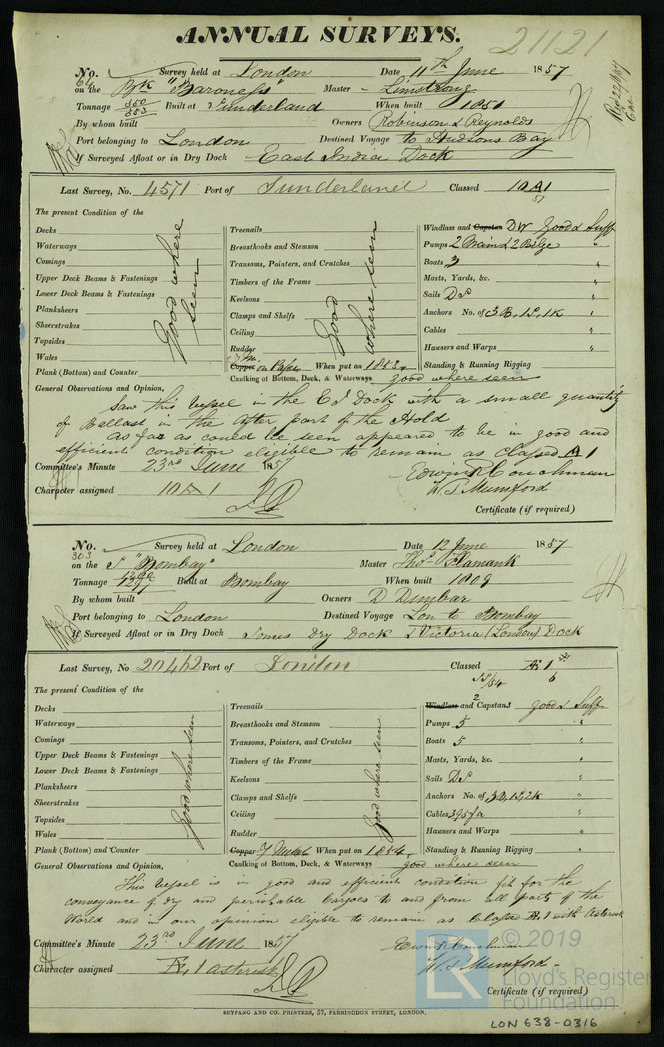 ANNUAL SURVEYS. 21121
No. 64 Survey held at London Date 11th June 1857
on the Bk "Baroness" Master - Limstrong
Tonnage 350 353 Built at Sunderland When built 1851
By whom built Owners Robinson & Reynolds
Port belonging to London Destined Voyage to Hudsons Bay
If Surveyed Afloat or in Dry Dock East India Dock
Last Survey, No. 4571 Port of Sunderland Classed 10 A1
57
The present Condition of the
Decks
Waterways
Comings
Upper Deck Beams & Fastenings
Lower Deck Beams & Fastenings
Planksheers
Sheerstrakes
Topsides
Wales
Plank (Bottom) and Counter
Good where seen
Treenails
Breasthooks and Stemson
Transoms, Pointers, and Crutches
Timbers of the Frame
Keelsons
Clamps and Shelfs
Ceiling
Rudder
Good where seen
Copper on Paper When put on 1853
Caulking of Bottom, Deck, & Waterways good where seen
Windlass and Capstan DW good & Suff
Pumps 2 Main & 2 Bilge "
Boats 3 "
Masts, Yards, &c. "
Sails DS "
Anchors No. of 3B, 1S, 1K "
Cables "
Hawsers and Warps "
Standing & Running Rigging
General Observations and Opinion,
Saw this vessel in the E I Dock with a small quantity
of Ballast in the After part of the Hold
As far as could be seen appeared to be in good and
efficient condition eligible to remain as Classed A 1
Committee's Minute 23rd June 1857
Edwin R Couchman
W. T. Mumford
Character assigned 10 A 1
Certificate (if required)
No. 303 Survey held at London Date 12 June 1857
on the S "Bombay" Master Thos. Flamank
Tonnage Built at Bombay When built 1809
By whom built Owners D Dunbar
Port belonging to London Destined Voyage Lon to Bombay
If Surveyed Afloat or in Dry Dock Somes Dry Dock & Victoria (London) Dock
Last Survey, No 20462 Port of London Classed Æ 1 *
The present Condition of the
Decks
Waterways
Comings
Upper Deck Beams & Fastenings
Lower Deck Beams & Fastenings
Planksheers
Sheerstrakes
Topsides
Wales
Plank (Bottom) and Counter
Good where seen
Treenails
Breasthooks and Stemson
Transoms, Pointers, and Crutches
Timbers of the Frame
Keelsons
Clamps and Shelfs
Ceiling
Rudder
Good where seen
Copper Y Metal When put on 1854
Caulking of Bottom, Deck, & Waterways good where seen
Windlass and 2 Capstans good & Suff
Pumps 5 "
Boats 5 "
Masts, Yards, &c. "
Sails DS "
Anchors No. of 3B, 1S, 2K "
Cables 395 fa "
Hawsers and Warps "
Standing & Running Rigging "
General Observations and Opinion,
This Vessel is in good and efficient condition fit for the
conveyance of dry and perishable Cargoes to and from all parts of the
World and in our opinion eligible to remain as Classed Æ 1 with Asterisk
Committee's Minute 23rd June 1857
Edwin R Couchman
W. T. Mumford
Character assigned Æ 1 asterisk
Certificate (if required)
SEYFANG AND CO. PRINTERS, 57, FARRINGDON STREET, LONDON.
LON 638-0316
© 2019
LR
Lloyd's Register
Foundation